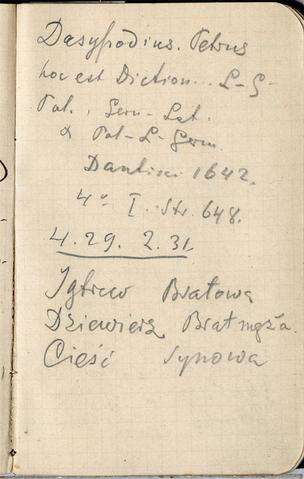 Dasypodius. Petrus
hoc est Diction... L-G-
Pol., Germ-Lat.
& Pol-L-Germ.
Dantisci 1642.
4º I. Str. 648.
4. 29. 2. 31.
Jątrew Bratowa
Dziewierz Brat męża.
Cieść Synowa